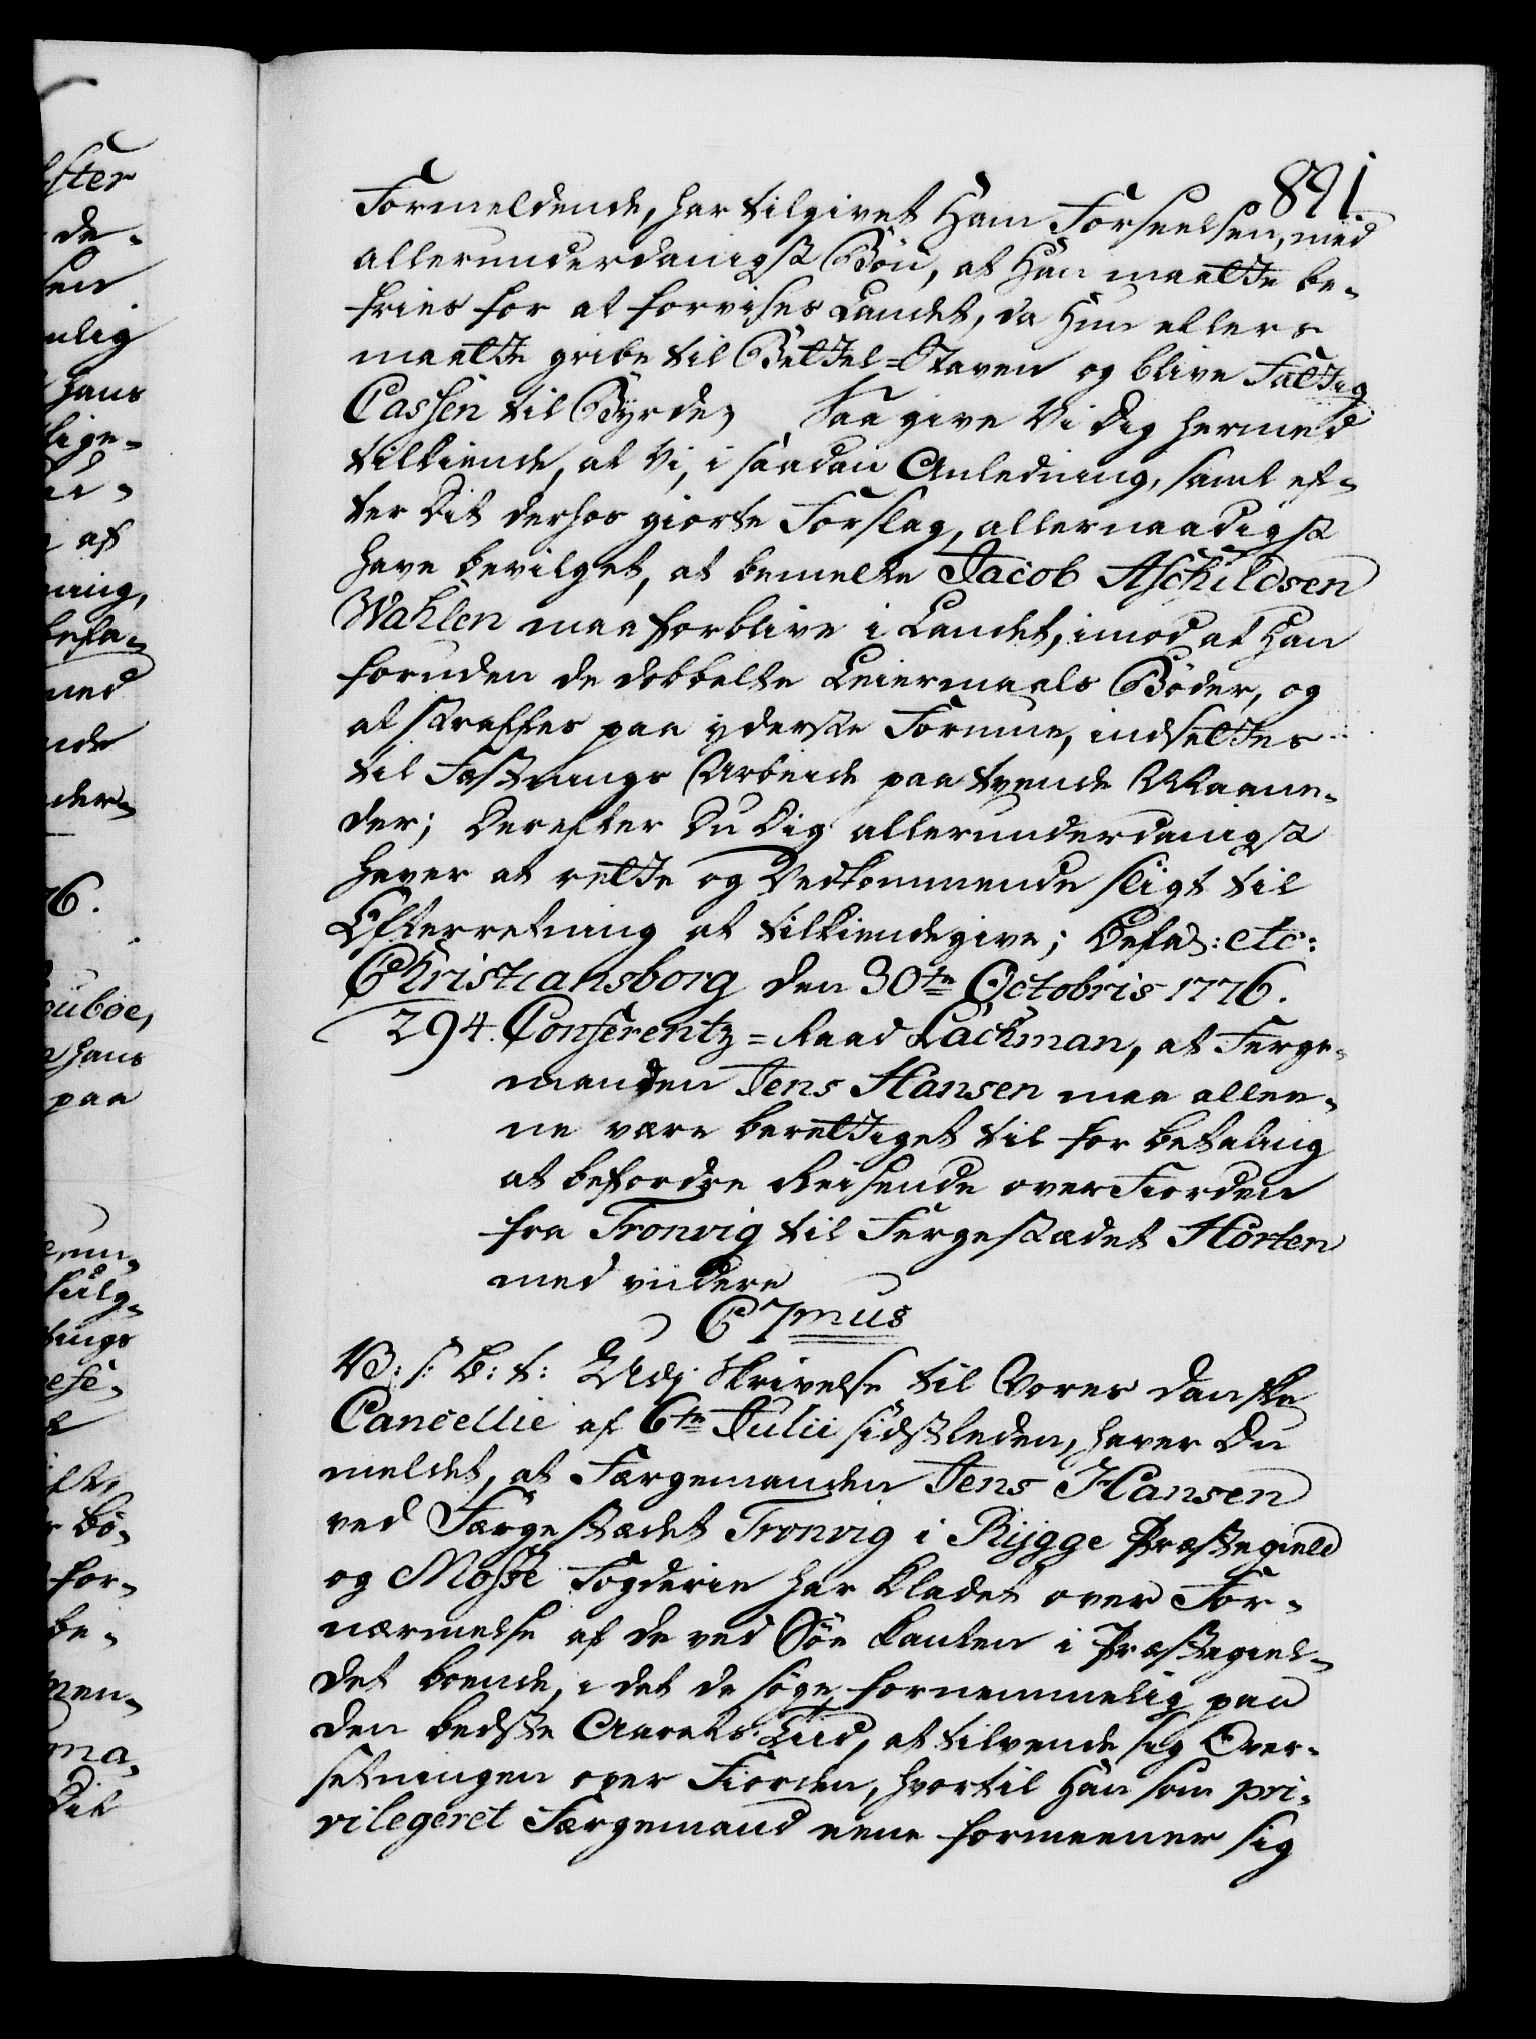 891.
Formeldende, har tilgivet Ham Forseelsen, med
allerunderdanigst Bön, at Han maatte be-
fries for at forvises Landet, da Hun ellers
maatte gribe til Bettel-Staven og blive Fattig
Cassen til Byrde; Saa give Vi Dig hermed
tilkiende, at Vi, i saadan Anledning, samt ef-
ter Dit derhos giorte Forslag, allernaadigst
have bevilget, at bemelte Jacob Aschildsen
Wahlen maa forblive i Landet, imod at Han
foruden de dobbelte Leiermaals Böder, og
at straffes paa yderste Formue, indsettes
til Fæstnings Arbeide paa tvende Maane-
der; Derefter Du Dig allerunderdanigst
haver at rette og Vedkommende sligt til
Efterretning at tilkiendegive; Befal: etc:
Christiansborg den 30te Octobris 1776.
294. Conferentz-Raad Lackman, at Ferge-
manden Jens Hansen maa allee-
ne være berettiget til for betaling
at befordre Reisende over Fiorden
fra Tronvig til Fergestædet Horten
med viidere
C 7mus
V: s: b: t: Udj Skrivelse til Vores danske
Cancellie af 6te Julii sidstleden, haver Du
meldet, at Færgemanden Jens Hansen
ved Færgestædet Tronvig i Rijgge Præstegield
og Mosse Fogderie har klaget over For-
nærmelse af de ved Söe kanten i Præstegiel-
det boende, i det de söge, fornemmelig paa
den bedste Aarets Tiid, at tilvende sig Over-
setningen over Fiorden, hvortil Han som pri-
vilegeret Færgemand eene formeener sig
hans
af
med
6.
hans
paa